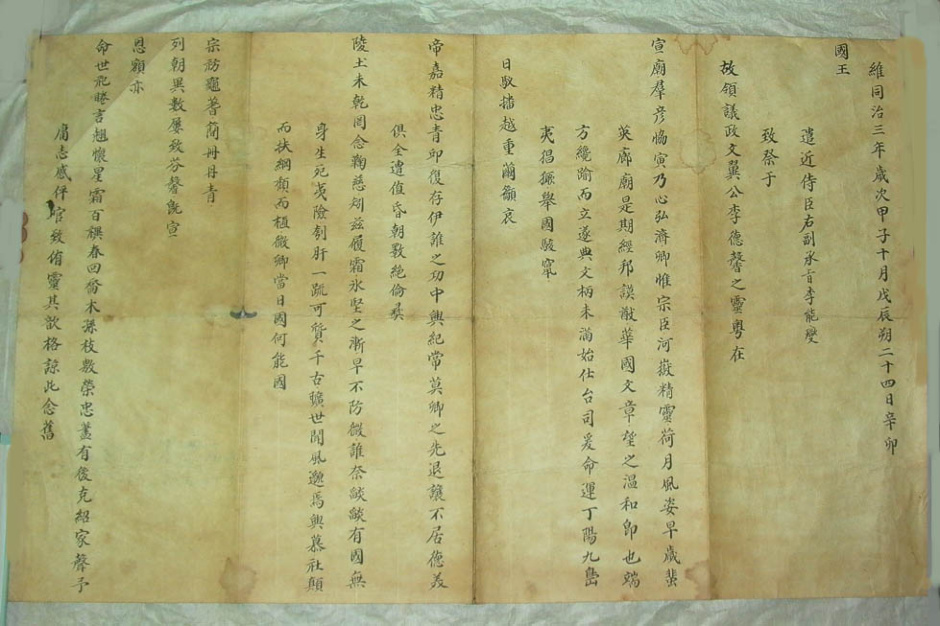 維同治三年歲次甲子十月戊辰朔二十四日辛卯
國王
遣近侍臣右副承旨李能燮
致祭于
故領議政文翼公李德馨之靈粤在
宣廟羣彦恊寅乃心弘濟卿惟宗臣河嶽精靈荷月風姿早歲蜚
英廊廟是期經邦謨猷華國文章望之溫和卽也端
方纔踰而立遂典文柄未滿始仕台司爰命運丁陽九島
夷猖獗擧國駿竄
日馭播越重繭籲哀
帝嘉精忠靑邱復存伊誰之功中興紀常莫卿之先退讓不居德美
俱全遭値昏朝斁絶倫彛
陵土未乾罔念鞠慈矧玆履霜氷堅之漸早不防微誰奈燄燄有國無
身生死夷險刳肝一䟽可質千古曠世聞風邈焉興慕社顚
而扶綱頹而植微卿當日國何能國
宗祊鼎蓍蘭冊丹靑
列朝異數屢致芬馨旣宣
恩額亦
命世祀睠言趙懷星霜百禩春回喬木孫枝敷榮忠藎有後克紹家聲予
庸志感伻官致侑靈其歆格諒此念舊